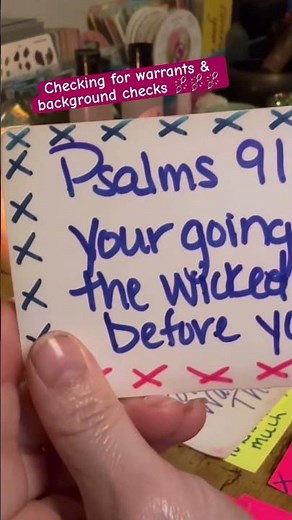 Checking for warrants &
background checks
Psalms 91
your going
the wicked
before yo
much